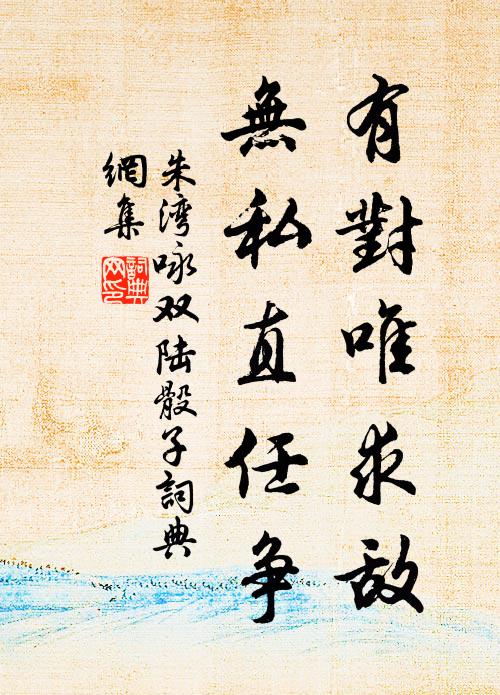 有對唯求敌
無私直任争
朱湾咏双陆骰子詞典
網集
詞典网印